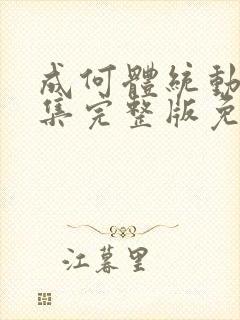 成何體統動
集完整版免
江暮里